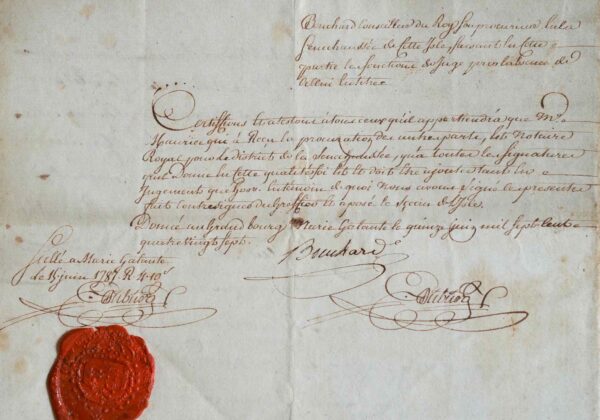 Bouchard Conseiller du Roy Son procureur En La
Senechaussée de Cette Isle, faisant En Cette
partie Les fonctions de Juge pour L'absence de
Certiffions Et attestons à tous ceux qu'il appartiendra que Me
Maurice qui à Reçu La procuration des autre parts, Est Notaire
Royal pour le district de La Senechaussée, qu'a toutes les Signatures
que donne En Cette qualité foi Est Et doit Etre ajoutée tant En
Jugements que hors. En temoin de quoi Nous avons Signé Ces presentes
fait Contresigner du Greffier Et aposé le Sceau
Donné au Grand bourg Marie Galante le quinze Juin mil Sept Cent
quatre Vingt Sept.
Bouchard
Scellé a Marie Galante
le 15 juin 1787. R